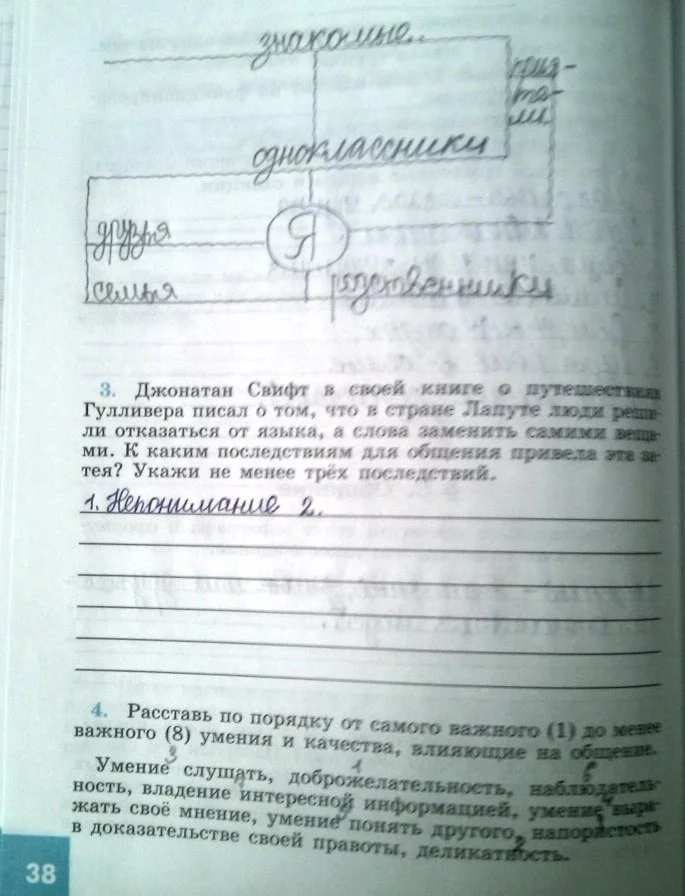 знакомые
прия-
те-
ли
одноклассники
друзья
Я
семья
родственники
3. Джонатан Свифт в своей книге о путешествиях
Гулливера писал о том, что в стране Лапуте люди реши-
ли отказаться от языка, а слова заменить самими веща-
ми. К каким последствиям для общения привела эта за-
тея? Укажи не менее трёх последствий.
1. Непонимание 2.
4. Расставь по порядку от самого важного (1) до менее
важного (8) умения и качества, влияющие на общение.
Умение слушать, доброжелательность, наблюдатель-
ность, владение интересной информацией, умение выра-
жать своё мнение, умение понять другого, напористость
в доказательстве своей правоты, деликатность.
38